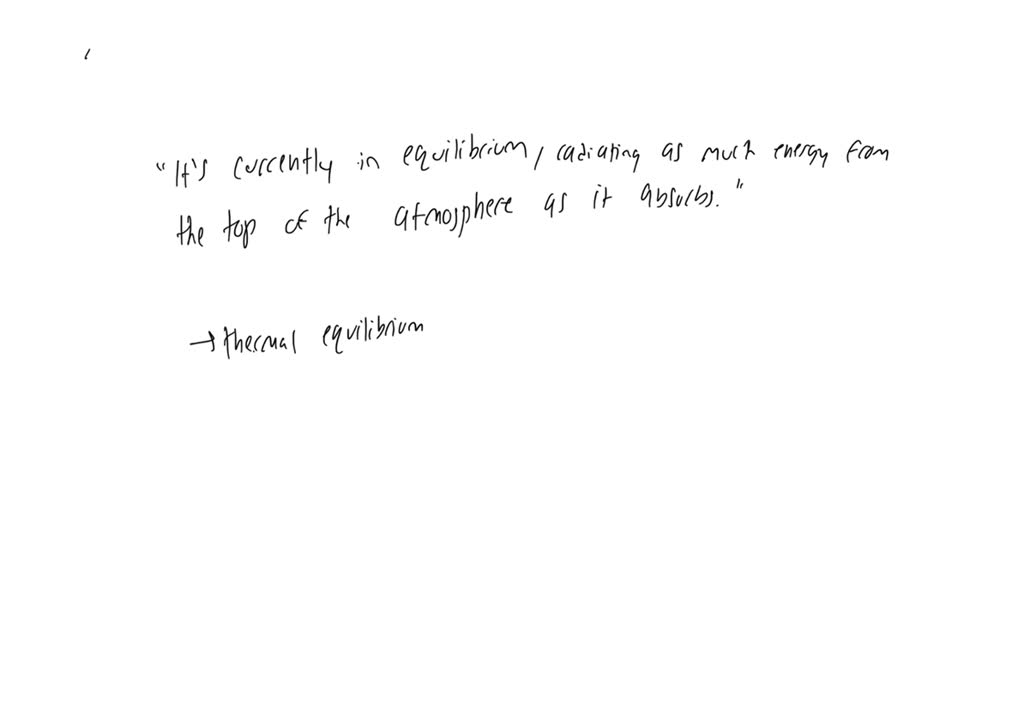 "It's currently in equilibrium, radiating as much energy from
the top of the atmosphere as it absorbs."
→ thermal equilibrium